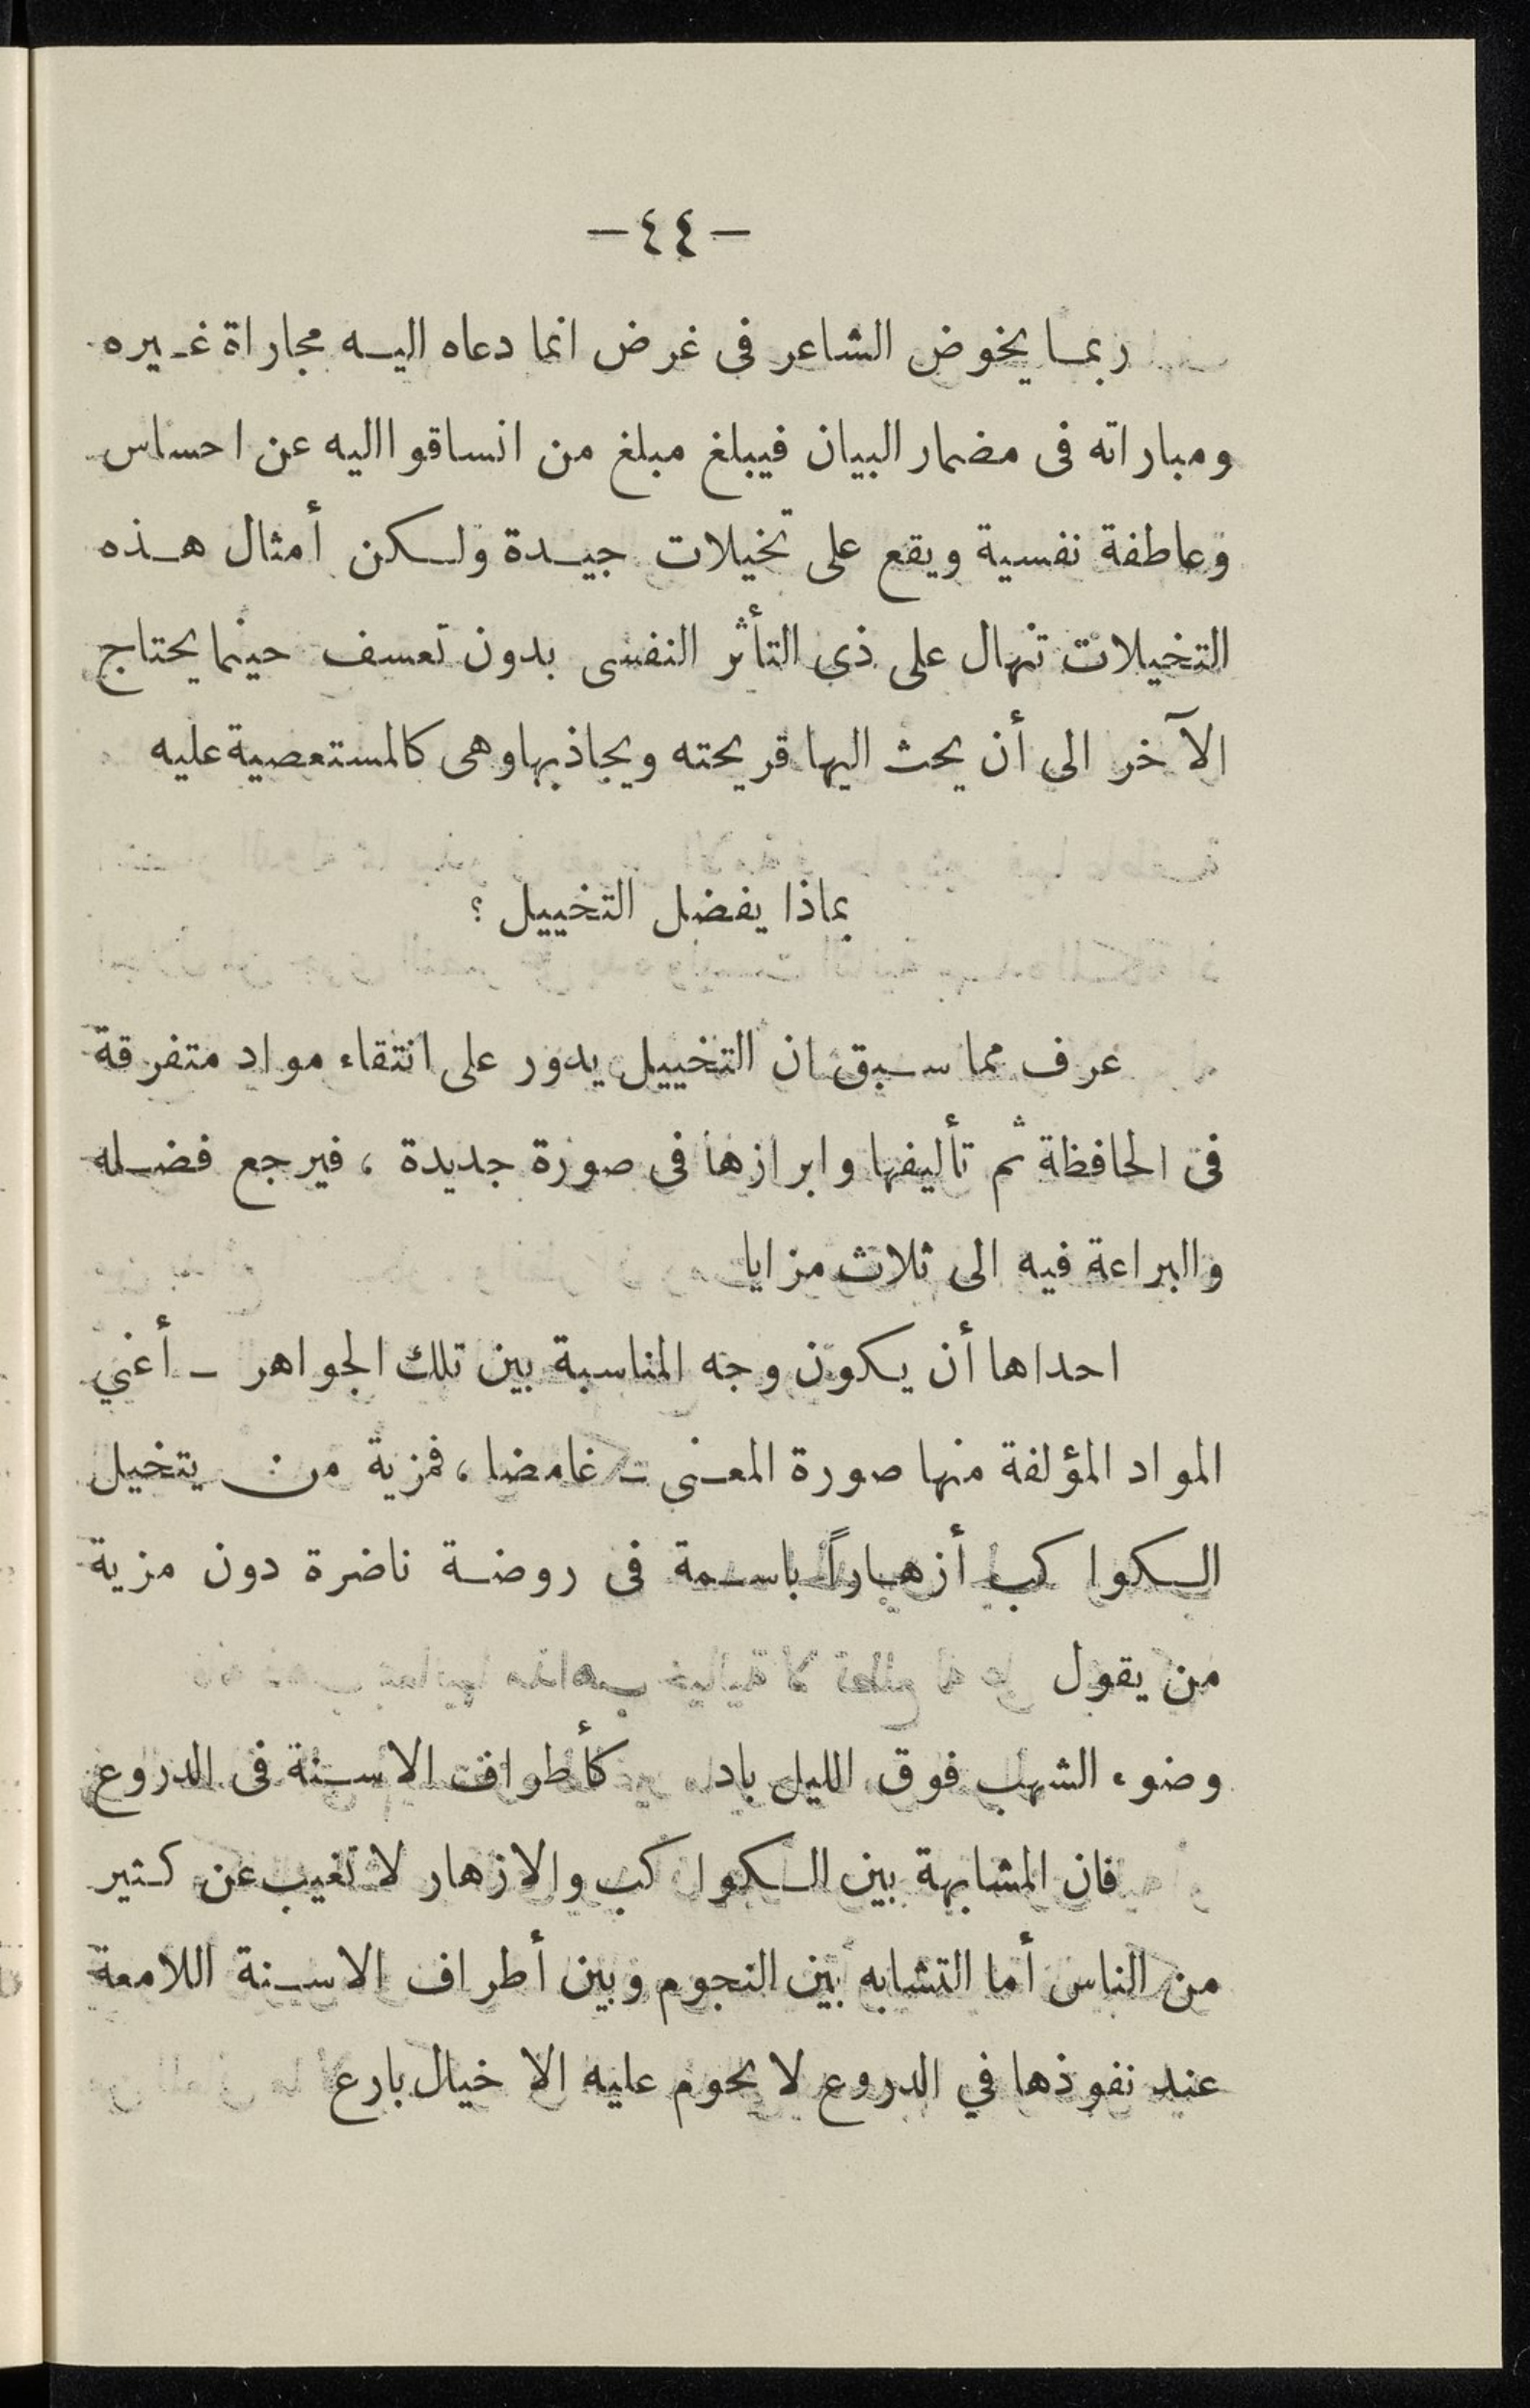 — ٤٤ —
ربما يخوض الشاعر فى غرض انما دعاه اليه مجاراة غيره
ومباراته فى مضمار البيان فيبلغ مبلغ من انساقوا اليه عن احساس
وعاطفة نفسية ويقع على تخيلات جيدة ولكن أمثال هذه
التخيلات تنهال على ذى التأثر النفسى بدون تعسف حينما يحتاج
الآخر الى أن يحث اليها قريحته ويجاذبها وهى كالمستعصية عليه
بماذا يفضل التخييل ؟
عرف مما سبق ان التخييل يدور على انتقاء مواد متفرقة
فى الحافظة ثم تأليفها وابرازها فى صورة جديدة ، فيرجع فضله
والبراعة فيه الى ثلاث مزايا
احداها أن يكون وجه المناسبة بين تلك الجواهر – أعني
المواد المؤلفة منها صورة المعنى – غامضا ، فمزية من يتخيل
الكواكب أزهاراً باسمة فى روضة ناضرة دون مزية
من يقول
وضوء الشهب فوق الليل باد كأطراف الاسنة فى الدروع
فان المشابهة بين الكواكب والازهار لا تغيب عن كثير
من الناس أما التشابه بين النجوم وبين أطراف الاسنة اللامعة
عند نفوذها في الدروع لا يحوم عليه الا خيال بارع